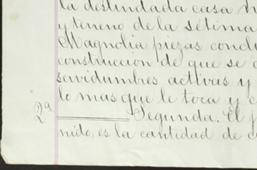 la deslindada casa
y terreno de la sétima
Magnolia piezas conclu
construccion de que se
servidumbres activas y
lo mas que le toca y
2ª Segunda. El
mite, es la cantidad de